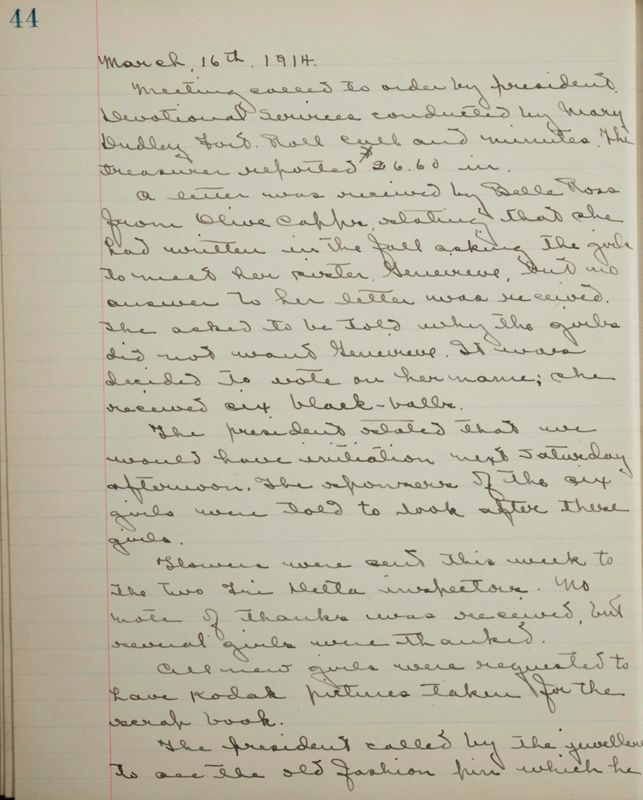 44
March, 16th, 1914.
Meeting called to order by president.
Devotional Services conducted by Mary
Dudley Fort. Roll call and minutes. The
treasurer reported $26.60 in.
A letter was received by Belle Ross
from Olive Capps, relating that she
had written in the fall asking the girls
to meet her sister, Genevieve, but no
answer to her letter was received.
She asked to be told why the girls
did not want Genevieve. It was
decided to vote on her name; she
received six black-balls.
The president stated that we
would have initiation next Saturday
afternoon. The sponsers of the six
girls were told to look after these
girls.
Flowers were sent this week to
the two Tri Delta inspectors. No
note of thanks was received, but
several girls were thanked.
All new girls were requested to
have Kodak pictures taken for the
scrap book.
The president called by the juvellers
to see the old fashion pin which he